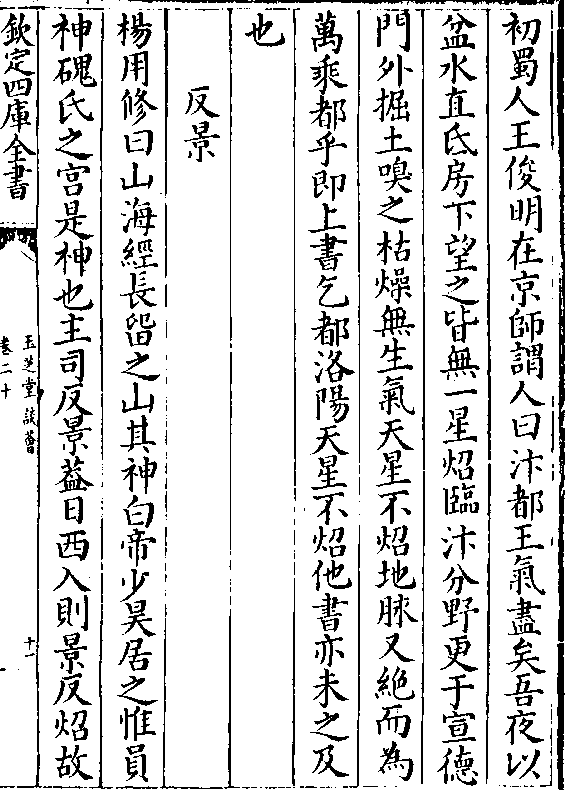 初蜀人王俊明在京師謂人曰汴都王氣盡矣吾夜以
盆水直氐房下望之皆無一星炤臨汴分野更于宣德
門外掘土嗅之枯燥無生氣天星不炤地脉又絶而為
萬乘都乎即上書乞都洛陽天星不炤他書亦未之及
也
反景
楊用修曰山海經長留之山其神白帝少昊居之惟員
神磈氏之宫是神也主司反景葢日西入則景反炤故
欽定四庫全書
玉芝堂談薈
卷二十
十一